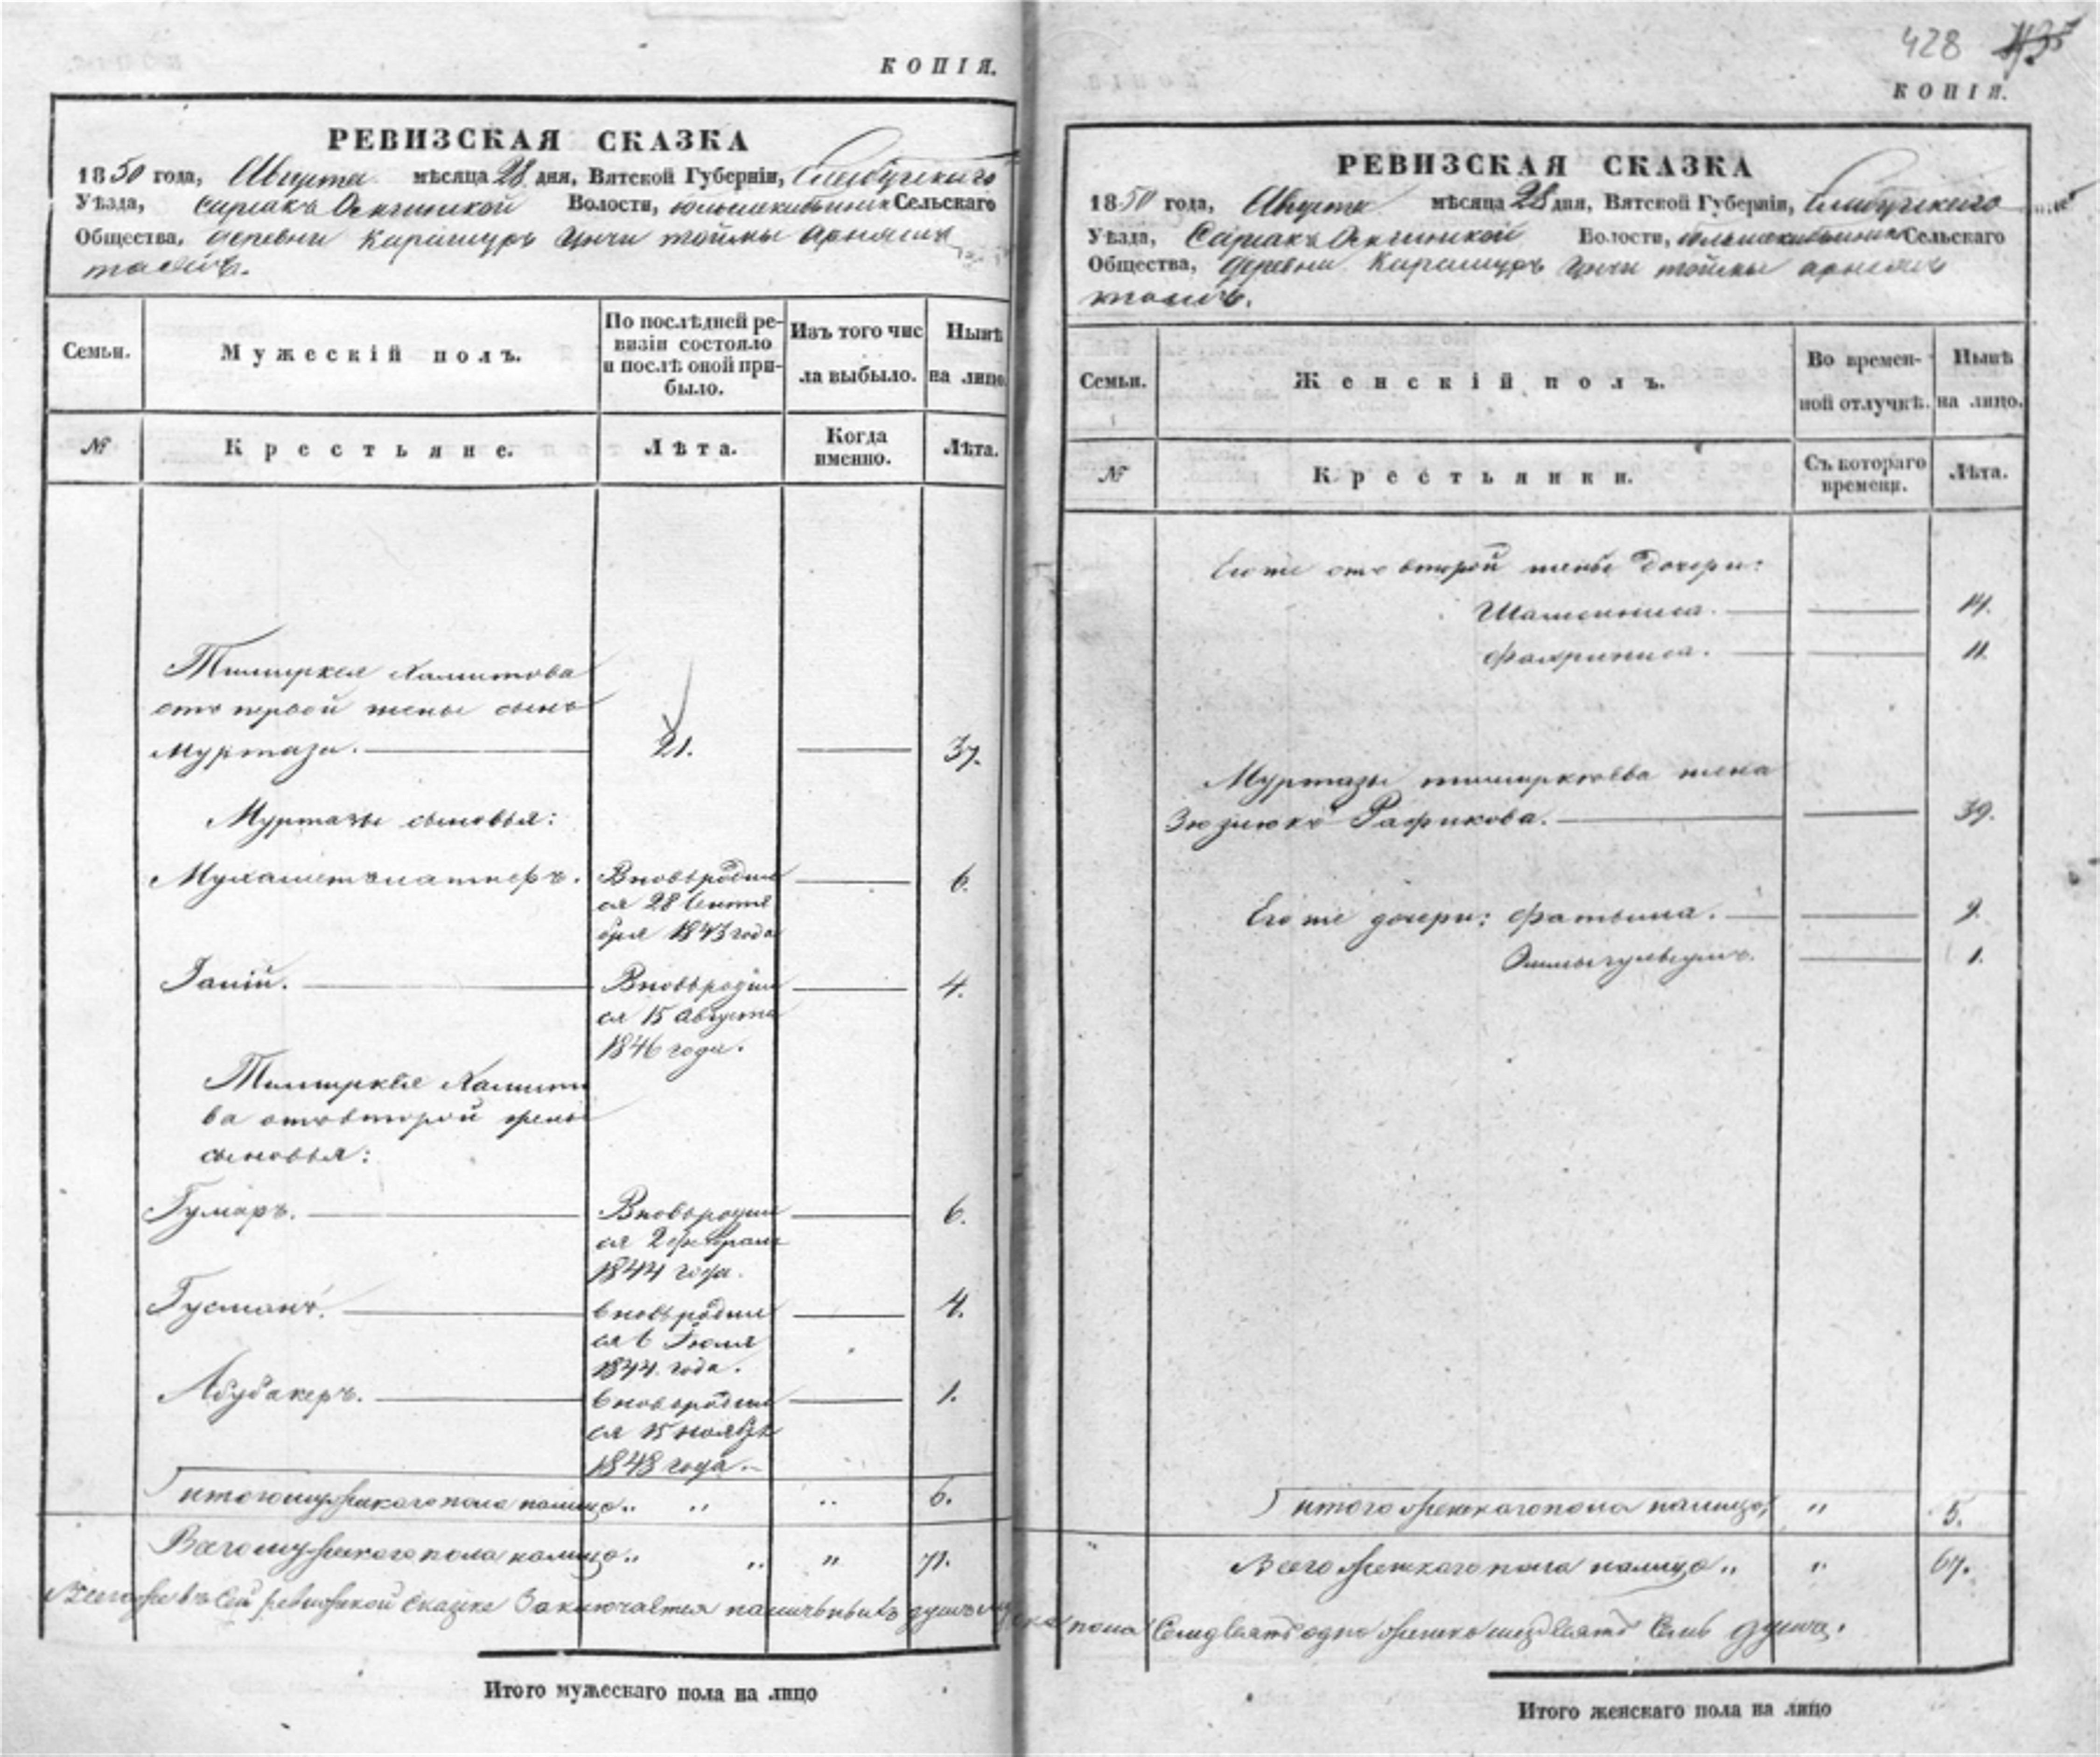 КОПІЯ.
РЕВИЗСКАЯ СКАЗКА
1850 года, Августа мѣсяца 28 дня, Вятской Губерніи, Елабужскаго
Уѣзда, Волости, Сельскаго
Общества, деревни Карашуръ
Семьи.
Мужескій полъ.
По послѣдней ре-
визіи состояло
и послѣ оной при-
было.
Изъ того чис
ла выбыло.
Нынѣ
на лицо.
№
Крестьяне.
Лѣта.
Когда
именно.
Лѣта.
Тимиркея Хамитова
отъ первой жены сынъ
Муртаза. 21. 37.
Муртазы сыновья:
Вновьродил 6.
ся 28 Сентя
бря 1843 года
Ганій. Вновьродил 4.
ся 15 Августа
1846 года.
Тимиркея Хамито
ва отъ второй жены
сыновья:
Гумаръ. Вновьродил 6.
ся 2 февраля
1844 года.
Гусманъ. вновьродил 4.
ся 6 Іюля
1844 года.
Абубакеръ. вновьродил 1.
ся 15 ноября
1848 года.
итого мужскаго пола налицо " " " 6.
Всего мужскаго пола налицо " " " 71.
Итого мужескаго пола на лицо
428
КОПІЯ.
РЕВИЗСКАЯ СКАЗКА
1850 года, Августа мѣсяца 28 дня, Вятской Губерніи, Елабужскаго
Уѣзда, Волости, Сельскаго
Общества, деревни Карашуръ
Семьи.
Женскій полъ.
Во времен-
ной отлучкѣ.
Нынѣ
на лицо.
№
Крестьянки.
Съ котораго
времени.
Лѣта.
Его же отъ второй жены дочери:
14.
Фахриниса. 11.
Муртазы жена
Рафикова. 39.
Его же дочери: Фатыма. 9.
1.
итого женскаго пола налицо " 5.
Всего женскаго пола налицо " " 67.
Всего же въ сей ревизской сказке заключается наличныхъ душъ мужска пола семдесятъ одно женска шездесятъ семь душъ.
Итого женскаго пола на лицо